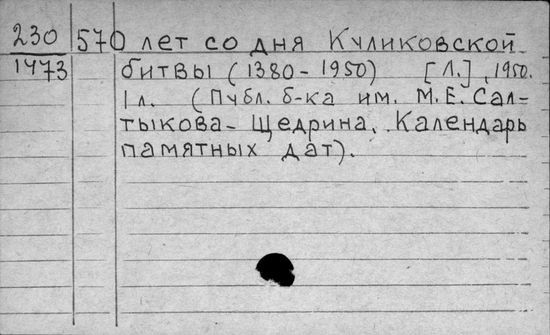 230 570 лет со дня Куликовской
1473 битвы (1380-1950) [Л.], 1950.
1л. (Публ. б-ка им. М.Е. Сал=
тыкова-Щедрина. Календарь
памятных дат).